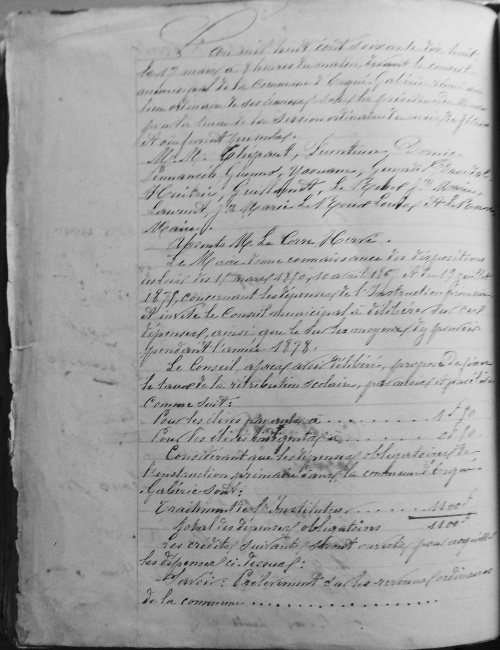 L'an mil huit cent soixante dix huit
le 17 mars à 8 heures du matin, devant le conseil
municipal de la Commune d'Ergué-Gabéric réuni au
lieu ordinaire de ses séances, sous la présidence
pour la tenue de la session ordinaire
et où furent présents.
M. M. Chipaut,
Yaouanc,
Huitric, Le Roux Jn Marie,
Laurent, Jn Marie Le Roux Louis, et le
Maire.
Absents M. Le Corre Hervé.
Le Maire donne connaissance des dispositions
des lois des 15 mars 1850, 10 avril 1867 et du 19 juillet
1875, concernant les dépenses de l'Instruction primaire
et invite le Conseil municipal à délibérer sur ces
dépenses, ainsi que le sur les moyens d'y pourvoir
pendant l'année 1878.
Le Conseil, après avoir délibéré, propose de fixer
le taux de la rétribution scolaire, par mois et
comme suit:
Pour les élèves payants, à . . . . . . . . 1f 50
Pour les élèves indigents, à . . . . . . .
Considérant que les dépenses obligatoires de
l'instruction primaire dans la commune d'Ergué-
Gabéric sont:
Traitement de l'Instituteur . . . . . 1100f
Total des dépenses obligatoires 1100f
Les crédits suivants seront ouverts pour acquitter
les dépenses ci-dessus:
Savoir: Prélèvement sur les revenus ordinaires
de la commune . . . . . . . . . . . . . .